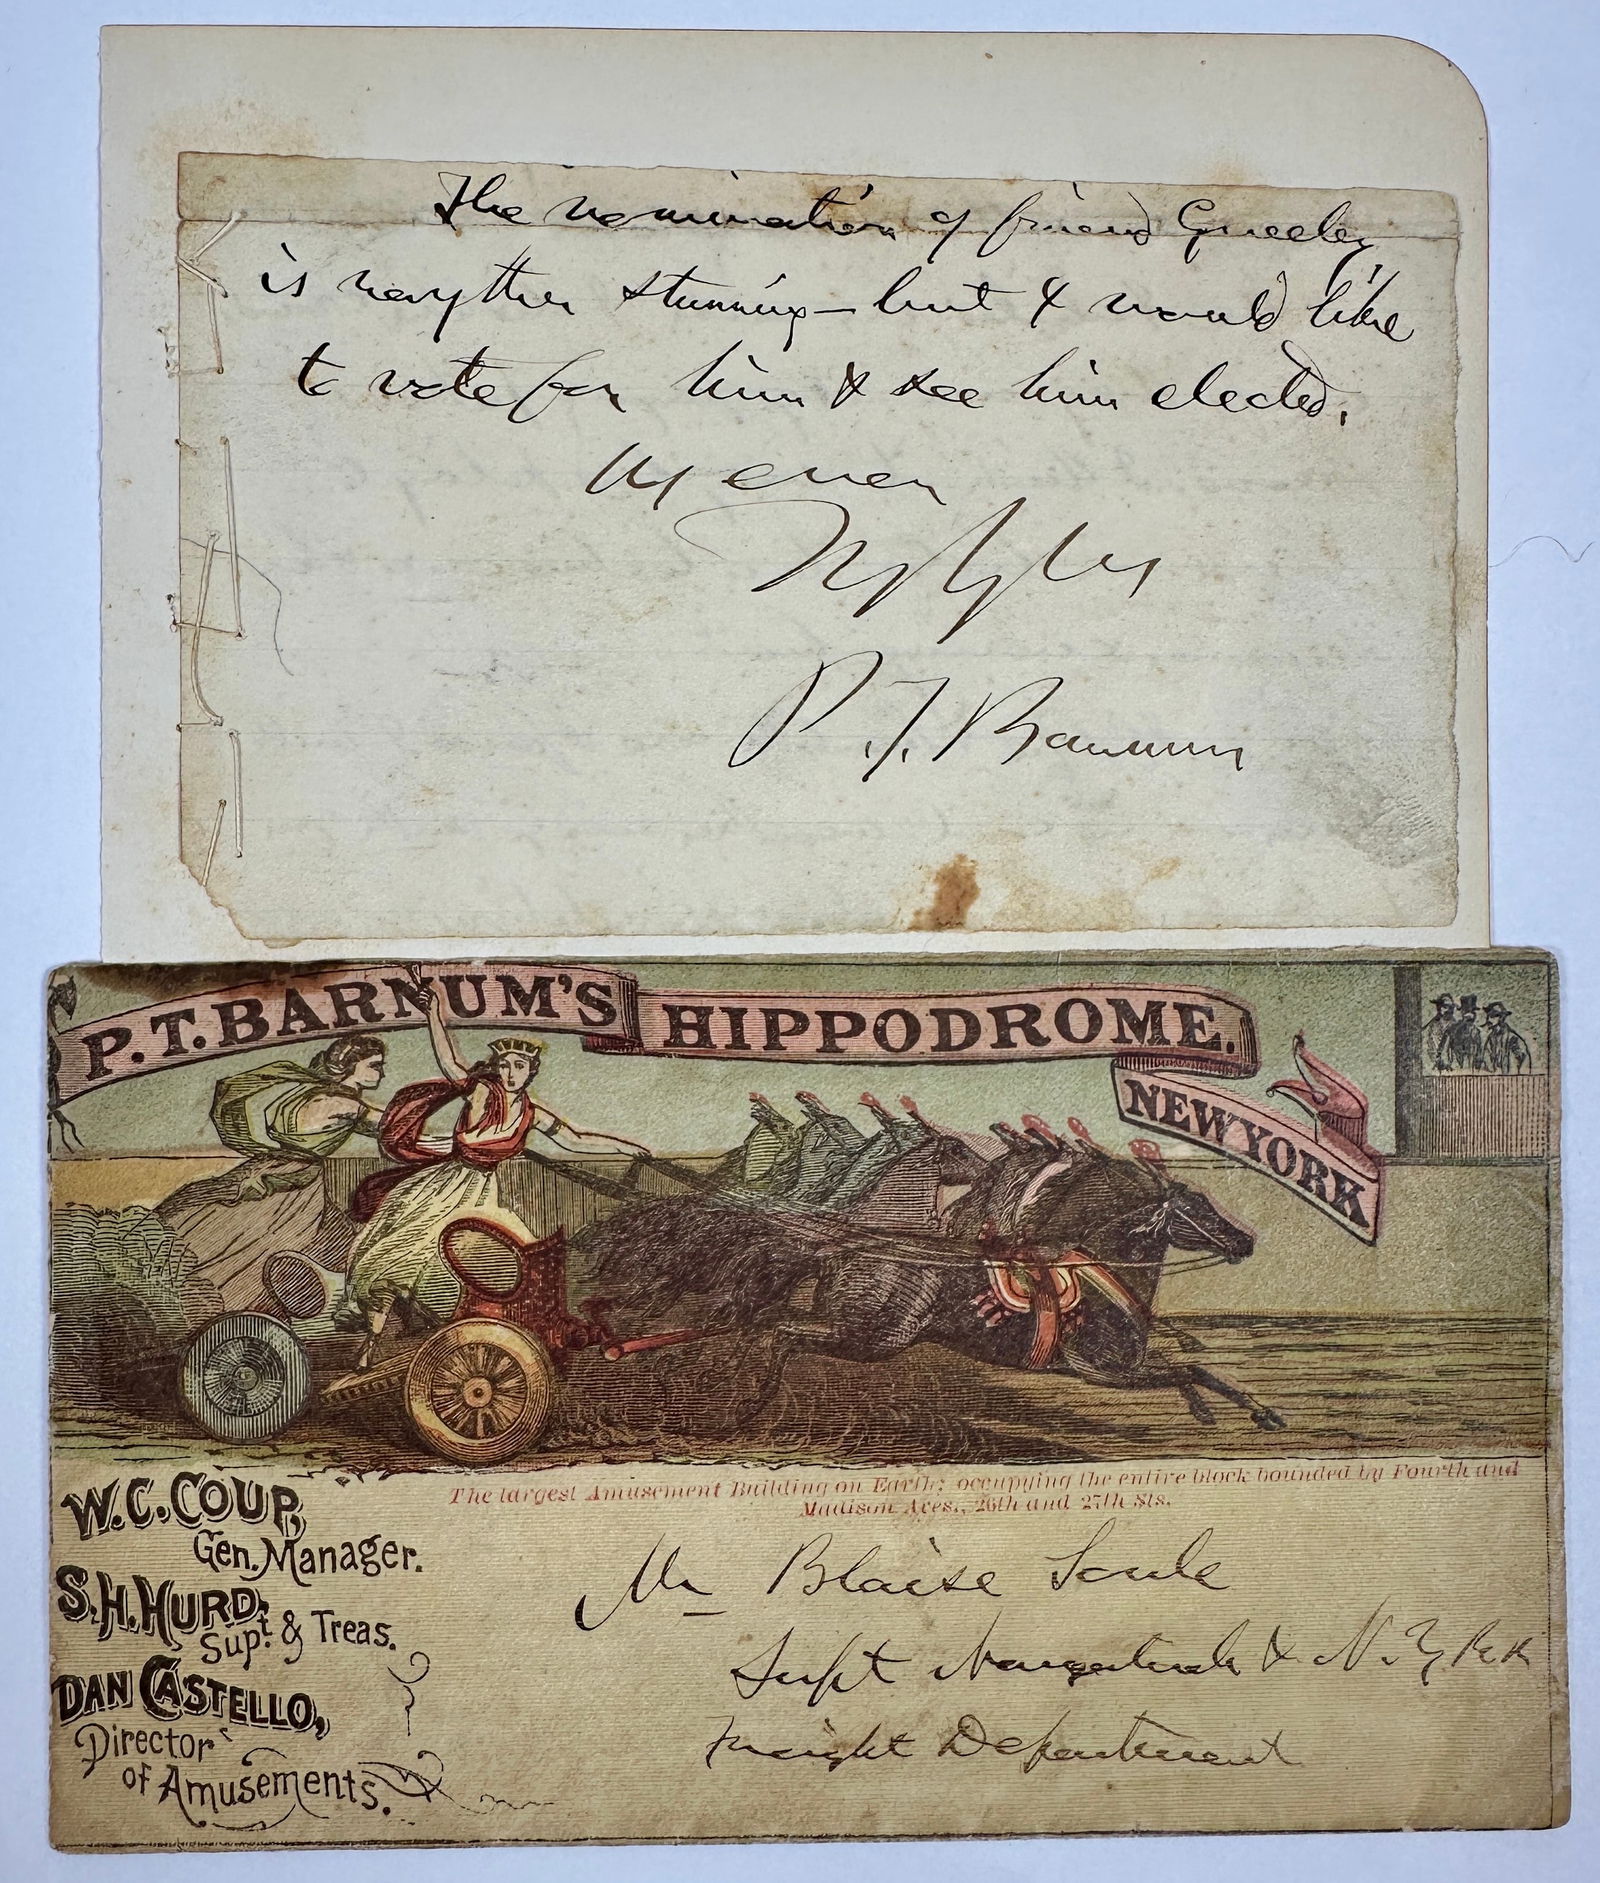 The nomination of friend Greeley
is stunning — but I would like
to vote for him & see him elected.
As ever
Truly yrs
P. T. Barnum
P.T. BARNUM'S HIPPODROME.
NEW YORK
The largest Amusement Building on Earth; occupying the entire block bounded by Fourth and
Madison Aves., 26th and 27th Sts.
W.C. COUP,
Gen. Manager.
S.H. HURD,
Supt. & Treas.
DAN CASTELLO,
Director
of Amusements.
Mr Blaise Soule
Supt Naugatuck & N.Y RR
Freight Department